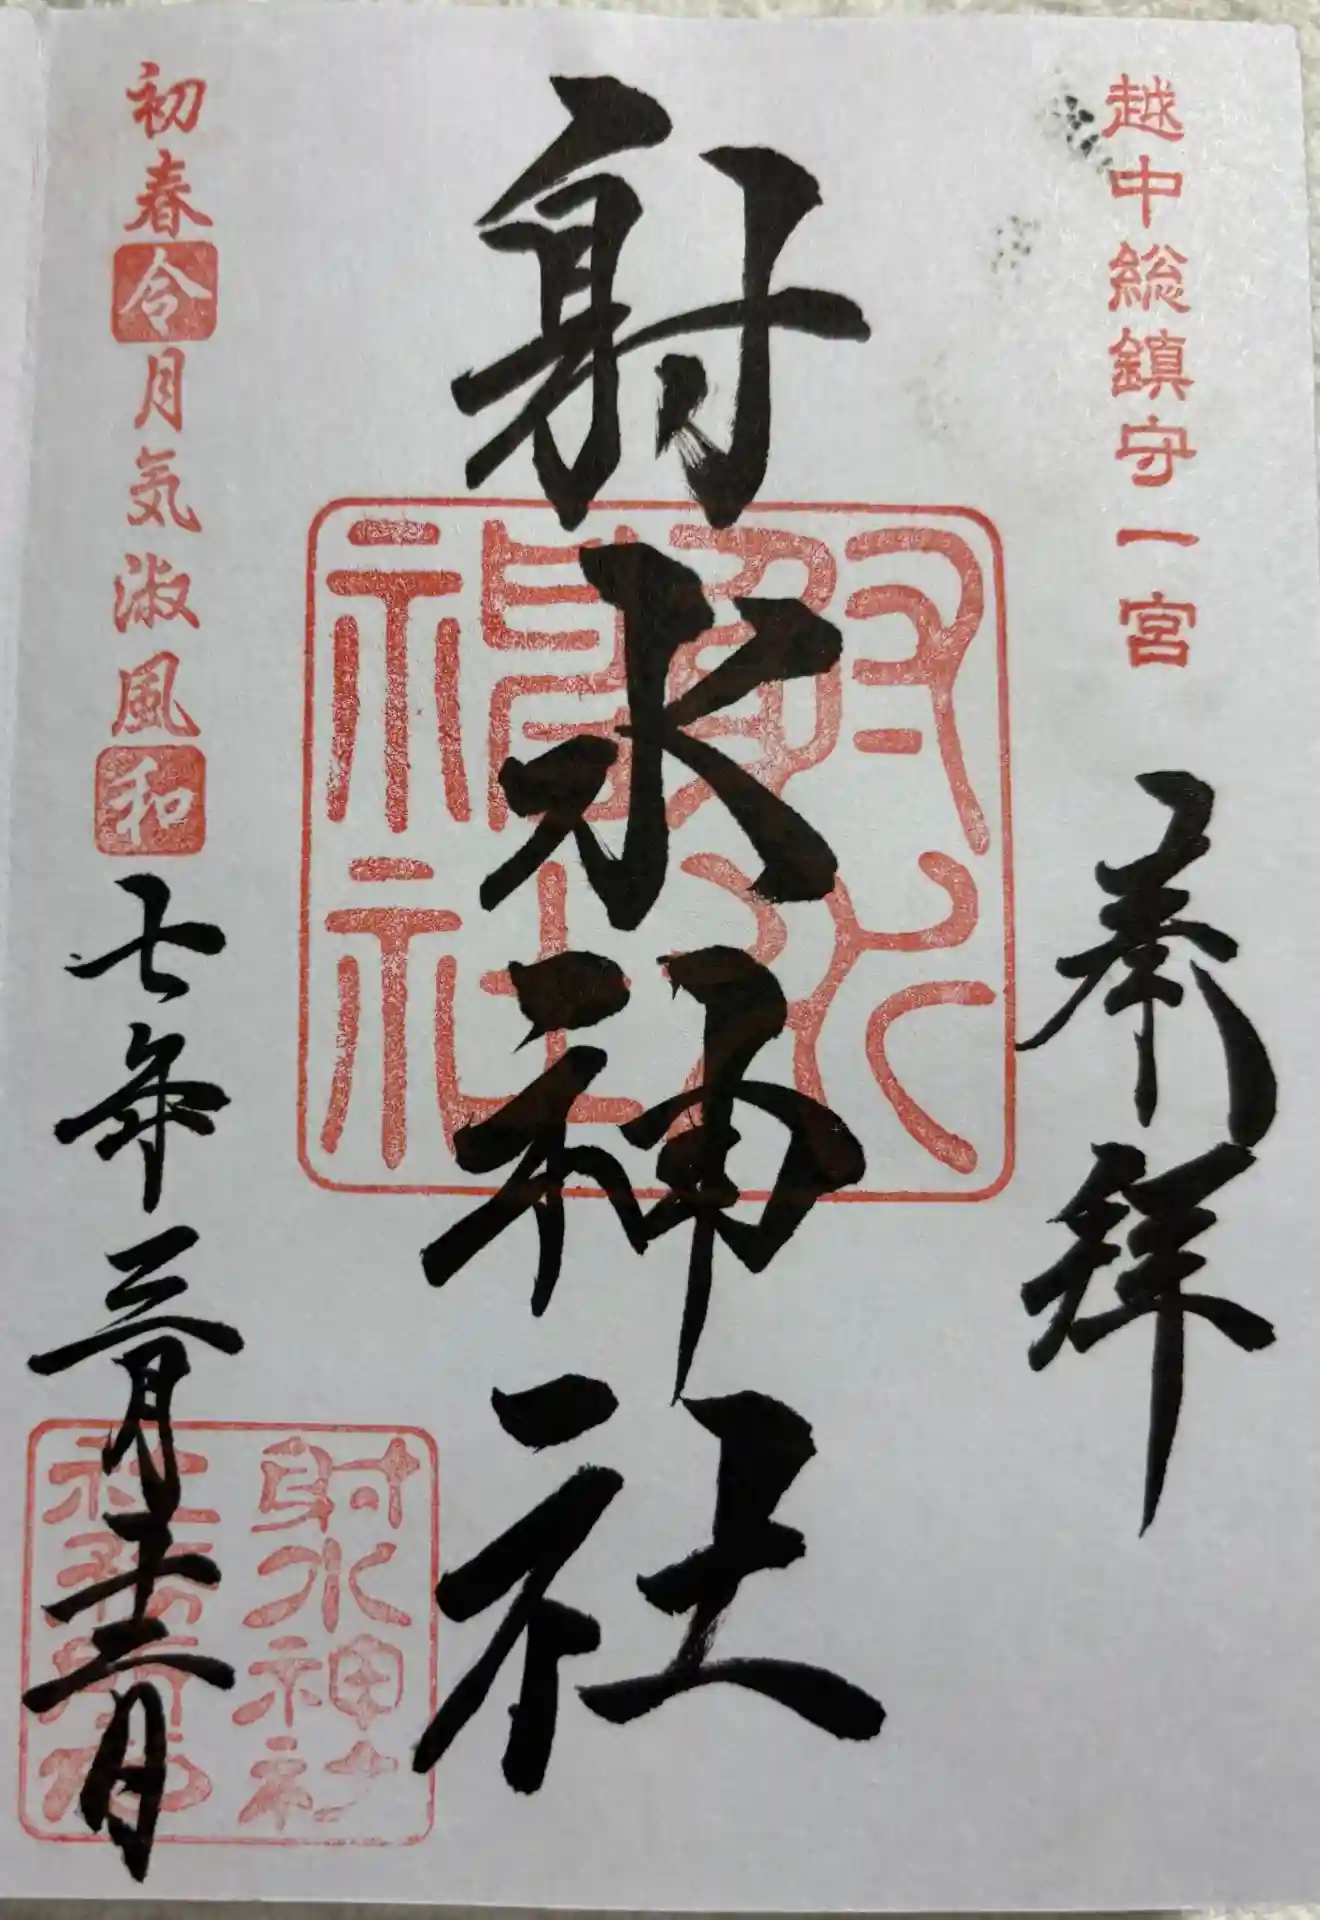 越中総鎮守一宮
奉拝
射水神社
射水神社
初春令月気淑風和
七年三月十二日
射水神社
社務所印